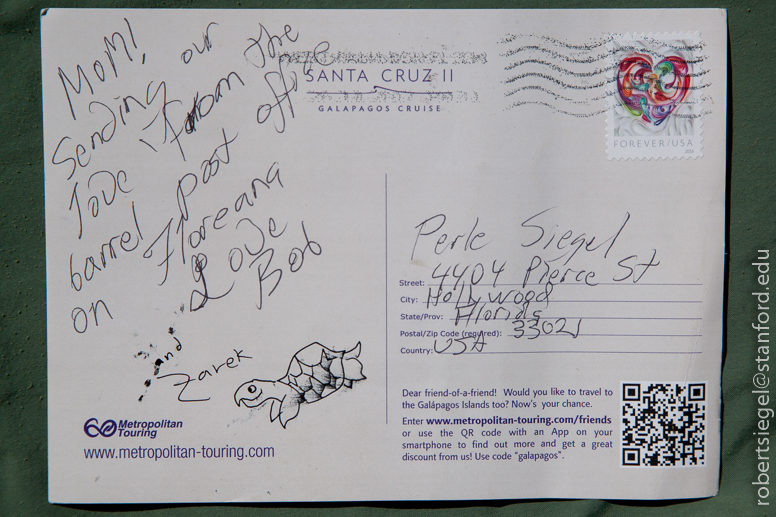 MOM,
Sending our
love from the
barrel post office
on Floreana
Love
Bob
and
Zarek
Metropolitan
Touring
www.metropolitan-touring.com
SANTA CRUZ II
GALAPAGOS CRUISE
FOREVER/USA
Perle Siegel
Street: 4404 Pierce St
City: Hollywood
State/Prov: Florida
Postal/Zip Code (required): 33021
Country: USA
Dear friend-of-a-friend! Would you like to travel
to the Galápagos Islands too? Now's your chance.
Enter www.metropolitan-touring.com/friends
or use the QR code with an App on your
smartphone to find out more and get a great
discount from us! Use code "galapagos".
robertsiegel@stanford.edu